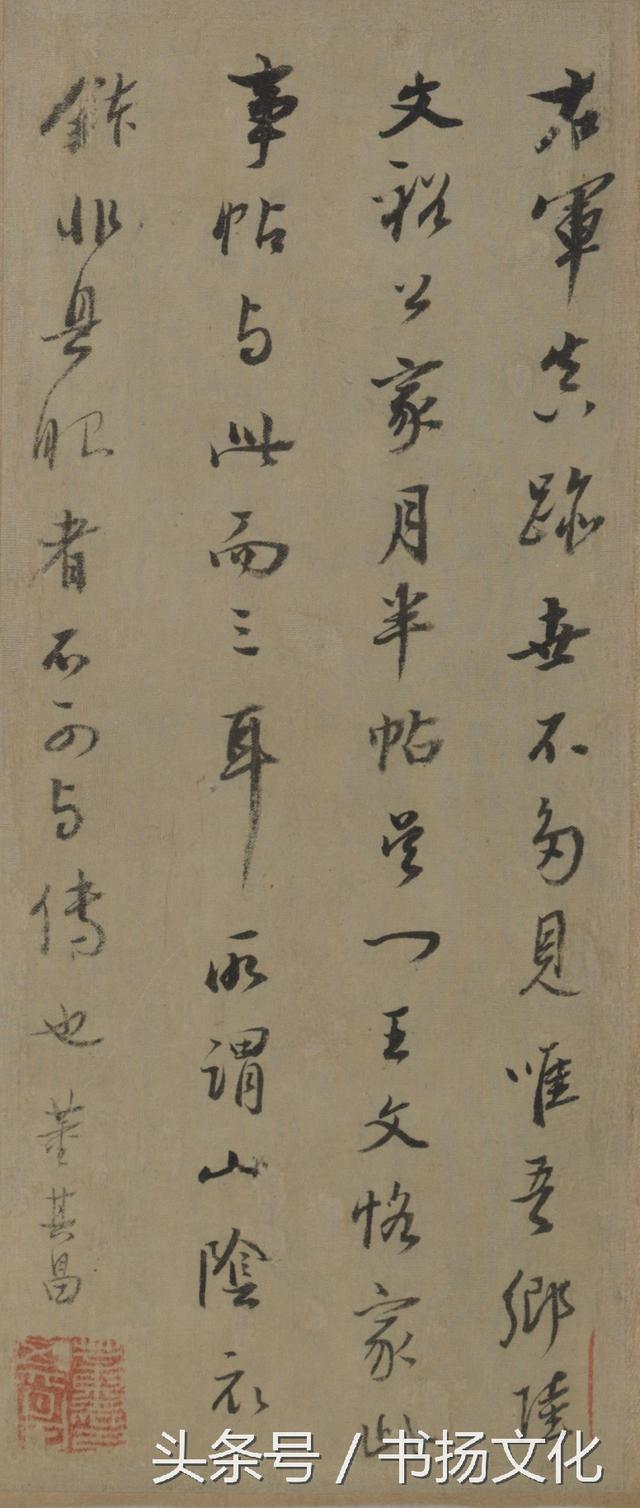 右軍真跡世不多見唯吾鄉陸
文裕公家月半帖吳门王文恪家此
事帖与此而三耳所謂山陰衣
鉢非具眼者不可与傳也董其昌
头条号 / 书扬文化